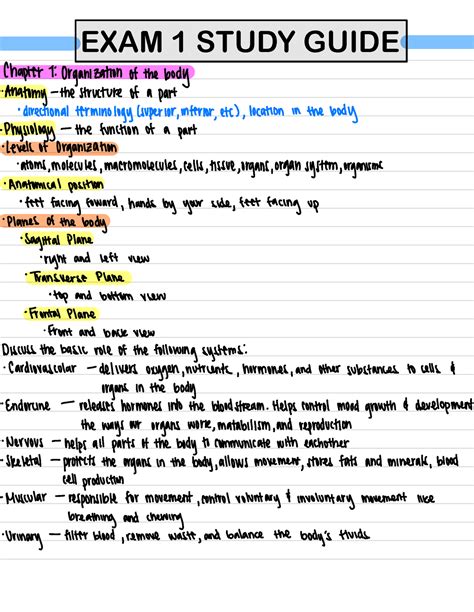 EXAM 1 STUDY GUIDE
Chapter 1: Organization of the body
·Anatomy — the structure of a part
·directional terminology (superior, inferior, etc), location in the body
·Physiology — the function of a part
·Levels of Organization
·atoms, molecules, macromolecules, cells, tissue, organs, organ system, organisms
·Anatomical position
·feet facing foward, hands by your side, feet facing up
·Planes of the body
·Sagittal Plane
·right and left view
·Transverse Plane
·top and bottom view
·Frontal Plane
·Front and back view
Discuss the basic role of the following systems:
·Cardiovascular — delivers oxygen, nutrients, hormones, and other substances to cells &
organs in the body
·Endocrine — releases hormones into the bloodstream. Helps control mood growth & development
the ways our organs work, metabilism, and reproduction
·Nervous — helps all parts of the body to communicate with eachother
·Skeletal — protects the organs in the body, allows movement, stores fats and minerals, blood
cell production
·Muscular — responsible for movement, control voluntary & involuntary movement like
breathing and chewing
·Urinary — filter blood, remove waste, and balance the body's fluids